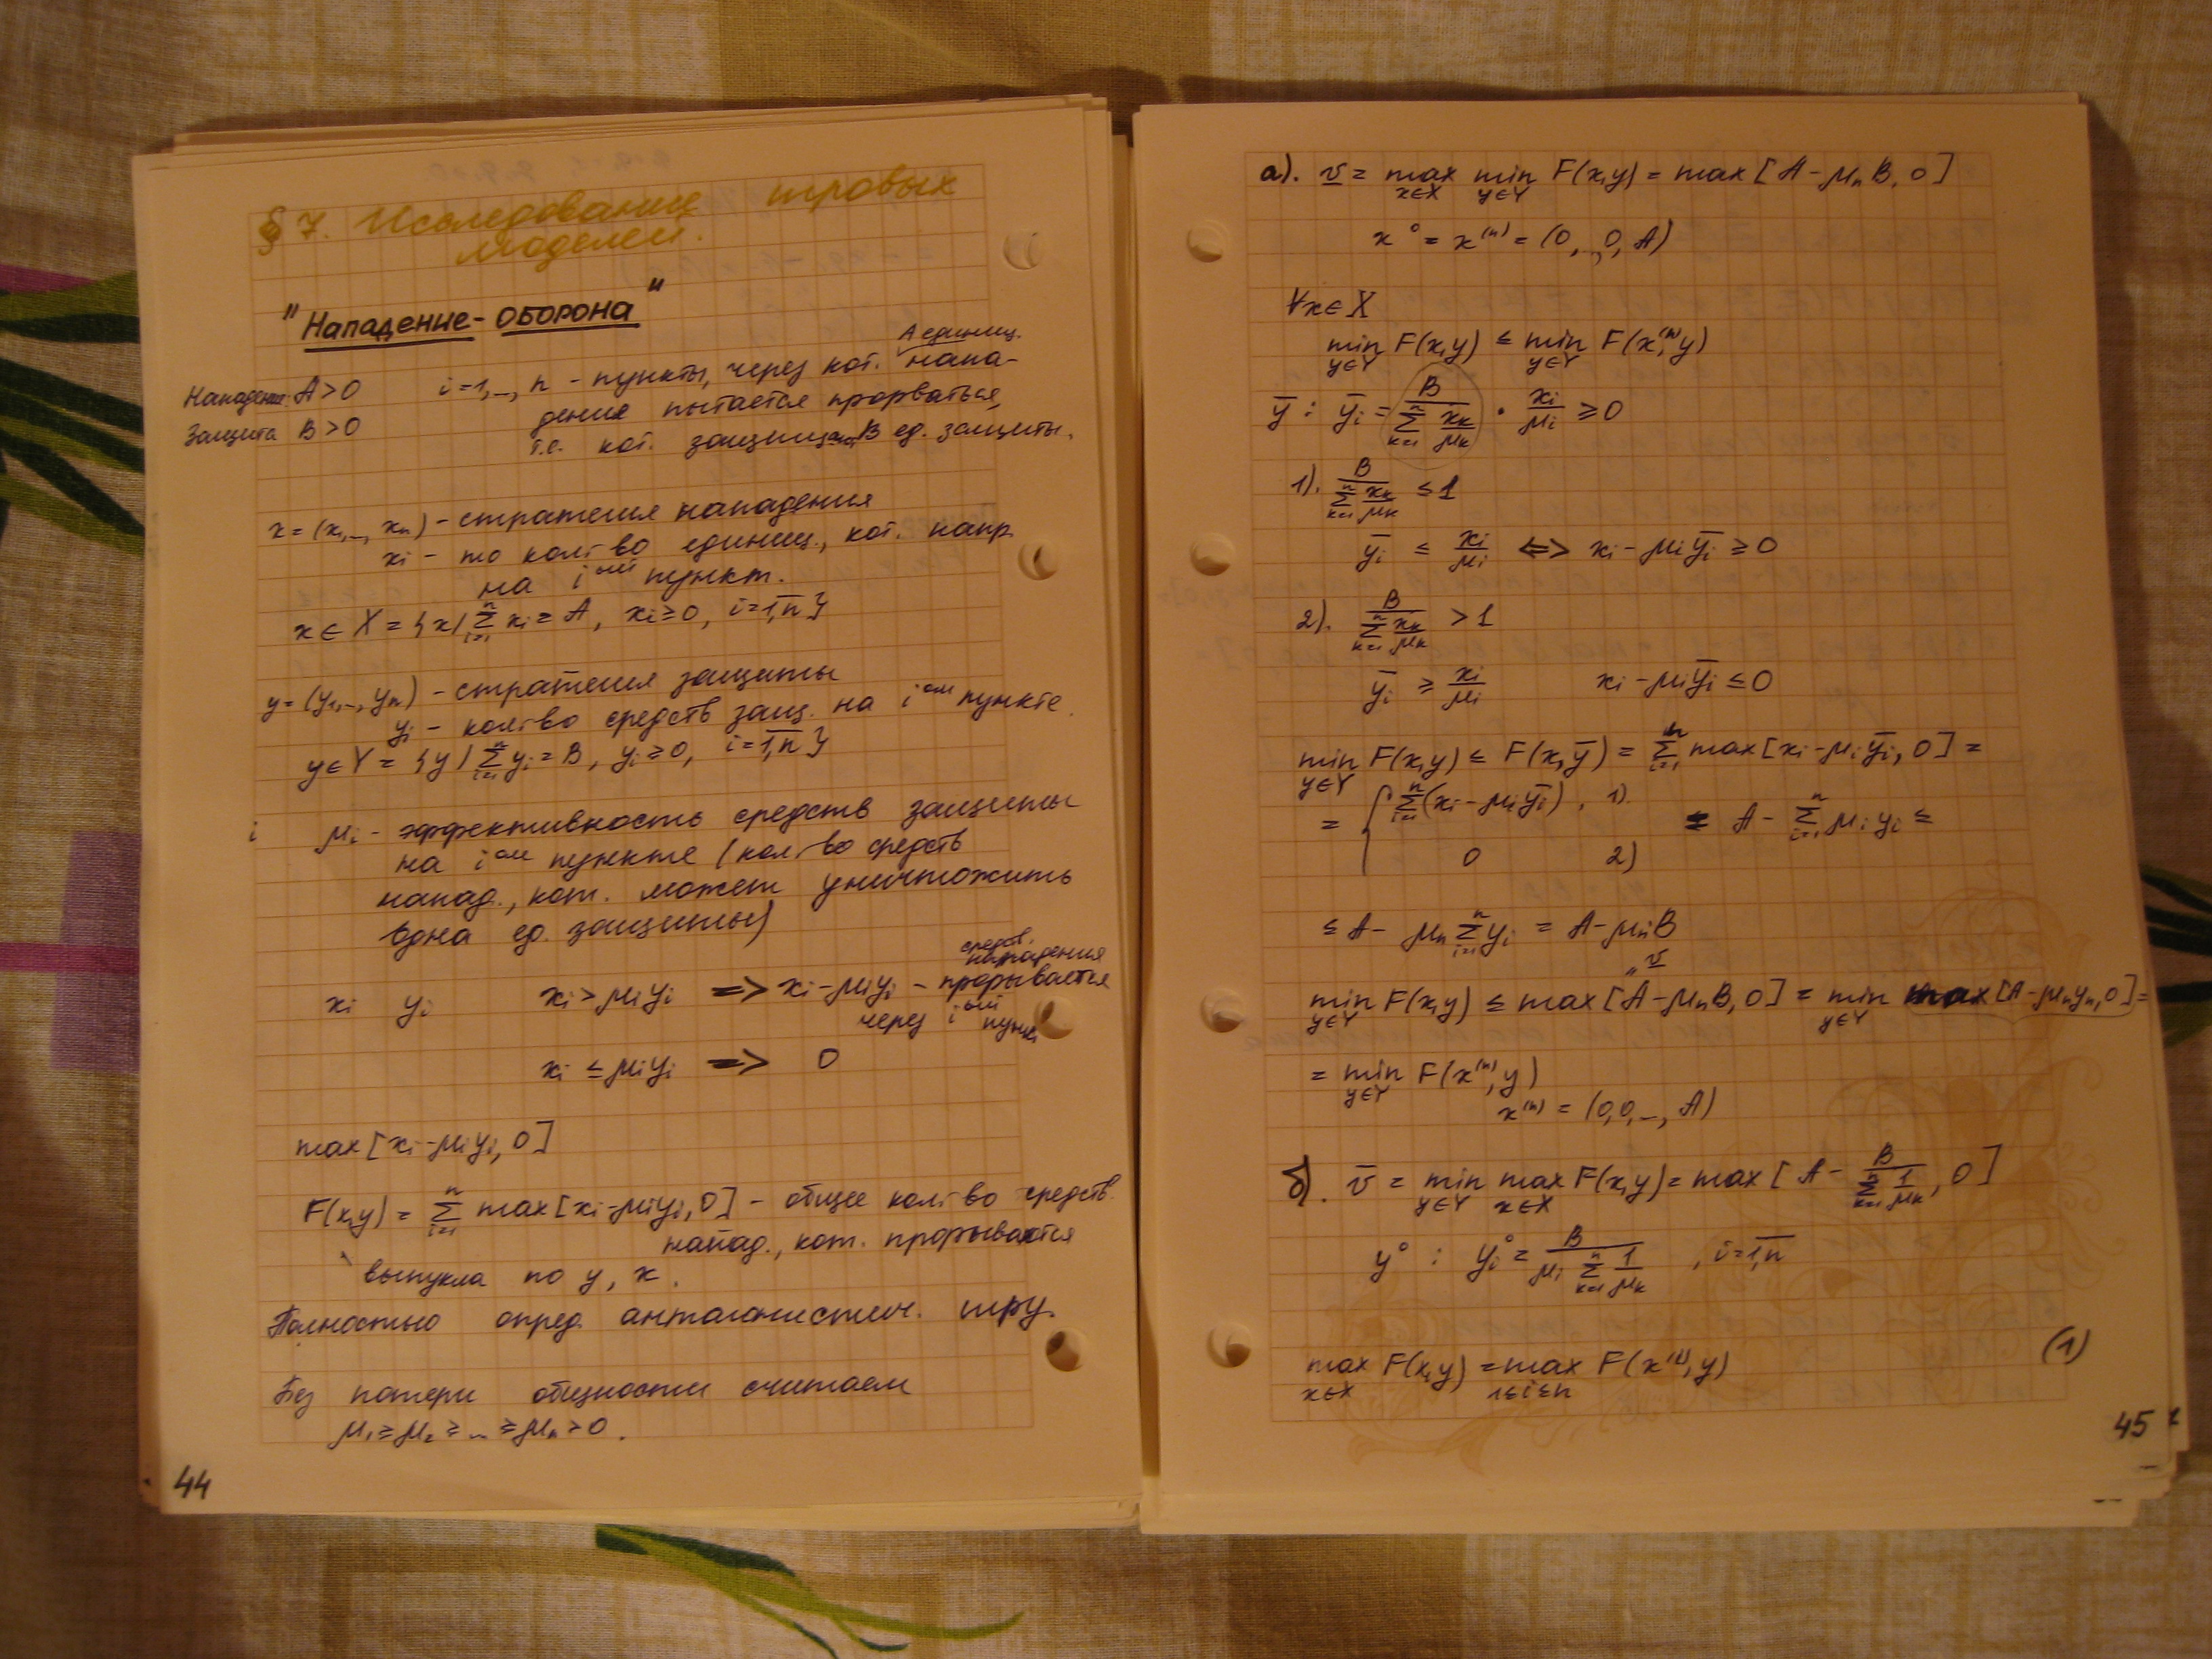 § 7. Исследование игровых
моделей.
"Нападение-оборона"
Нападение: A>0
Защита B>0
A единиц.
i=1,..., n - пункты, через кот. напа-
дение пытается прорваться,
т.е. кот. защищ. B ед. защиты.
x=(x₁,..., xₙ) - стратегия нападения
xᵢ - то кол-во единиц, кот. напр.
на iый пункт.
x∈X={x| ∑ᵢ₌₁ⁿ xᵢ=A, xᵢ≥0, i=1,n̅}
y=(y₁,..., yₙ) - стратегия защиты
yᵢ - кол-во средств защ. на iом пункте.
y∈Y={y| ∑ᵢ₌₁ⁿ yᵢ=B, yᵢ≥0, i=1,n̅}
i μᵢ - эффективность средств защиты
на iом пункте (кол-во средств
напад., кот. может уничтожить
одна ед. защиты)
xᵢ yᵢ xᵢ>μᵢyᵢ => xᵢ-μᵢyᵢ - средств. нападения прорывается
через iый пункт
xᵢ ≤ μᵢyᵢ => 0
max[xᵢ-μᵢyᵢ, 0]
F(x,y) = ∑ᵢ₌₁ⁿ max[xᵢ-μᵢyᵢ, 0] - общее кол-во средств
напад., кот. прорываются
выпукла по y, x.
Полностью опред. антагонистич. игру.
Без потери общности считаем
μ₁≥μ₂≥...≥μₙ>0.
44
а). v̲ = max_{x∈X} min_{y∈Y} F(x,y) = max[A-μₙB, 0]
x⁰ = x⁽ⁿ⁾ = (0,..,0, A)
∀x∈X
min_{y∈Y} F(x,y) ≤ min_{y∈Y} F(x⁽ⁿ⁾,y)
ȳ : ȳᵢ = B/(∑ₖ₌₁ⁿ xₖ/μₖ) · xᵢ/μᵢ ≥0
1). B/(∑ₖ₌₁ⁿ xₖ/μₖ) ≤1
ȳᵢ ≤ xᵢ/μᵢ <=> xᵢ-μᵢȳᵢ ≥0
2). B/(∑ₖ₌₁ⁿ xₖ/μₖ) >1
ȳᵢ ≥ xᵢ/μᵢ xᵢ-μᵢȳᵢ ≤0
min_{y∈Y} F(x,y) ≤ F(x,ȳ) = ∑ᵢ₌₁ⁿ max[xᵢ-μᵢȳᵢ, 0] =
= { ∑ᵢ₌₁ⁿ(xᵢ-μᵢȳᵢ), 1). = A - ∑ᵢ₌₁ⁿ μᵢyᵢ ≤
0 2)
≤ A - μₙ ∑ᵢ₌₁ⁿ yᵢ = A-μₙB
" v̲
min_{y∈Y} F(x,y) ≤ max[A-μₙB, 0] = min_{y∈Y} max[A-μₙyₙ, 0] =
= min_{y∈Y} F(x⁽ⁿ⁾,y)
x⁽ⁿ⁾ = (0,0,..., A)
б). v̄ = min_{y∈Y} max_{x∈X} F(x,y) = max[A - B/(∑ₖ₌₁ⁿ 1/μₖ), 0]
y⁰ : yᵢ⁰ = B/(μᵢ ∑ₖ₌₁ⁿ 1/μₖ), i=1,n̅
max_{x∈X} F(x,y) = max_{1≤i≤n} F(x⁽ⁱ⁾,y) (1)
45